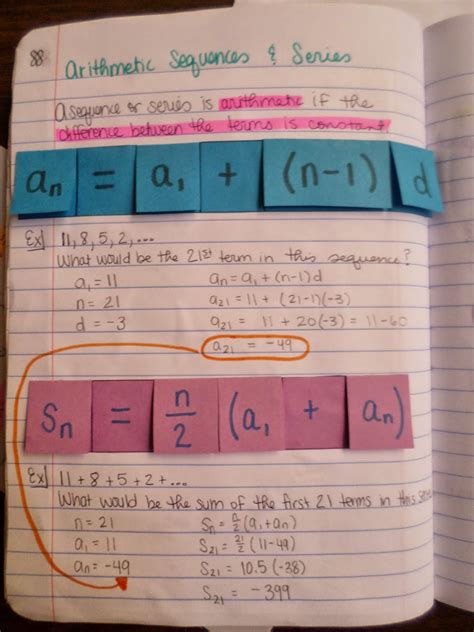 88
Arithmetic Sequences & Series
A sequence or series is arithmetic if the
difference between the terms is constant.
an = a1 + (n-1) d
Ex] 11, 8, 5, 2, ...
What would be the 21st term in this sequence?
a1 = 11 an = a1 + (n-1)d
n = 21 a21 = 11 + (21-1)(-3)
d = -3 a21 = 11 + 20(-3) = 11-60
a21 = -49
Sn = n/2 (a1 + an)
Ex] 11 + 8 + 5 + 2 + ...
What would be the sum of the first 21 terms in this
n = 21 Sn = n/2 (a1 + an)
a1 = 11 S21 = 21/2 (11-49)
an = -49 S21 = 10.5 (-38)
S21 = -399